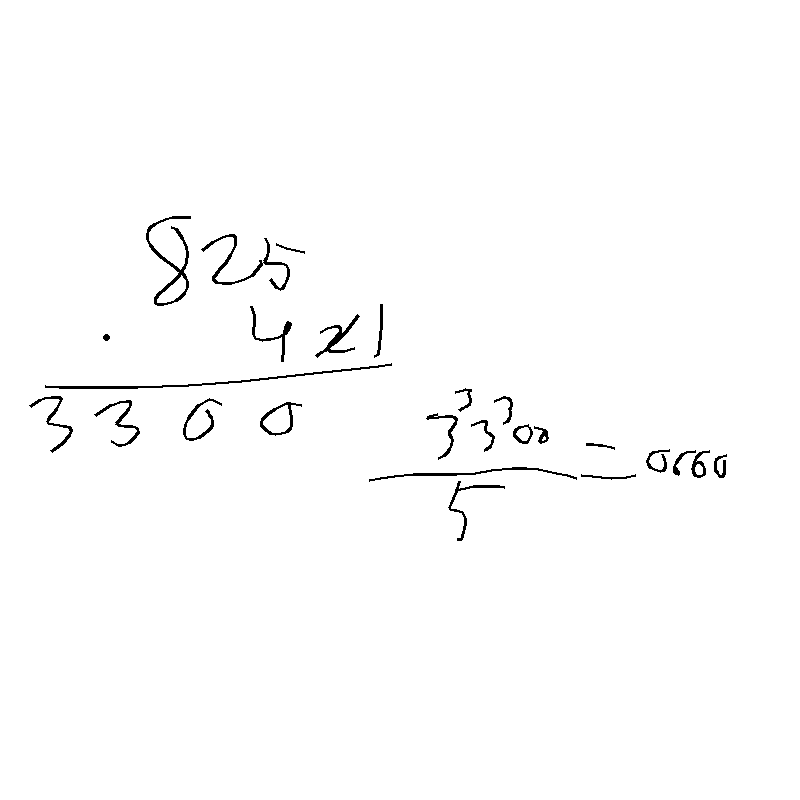 825
. 4 2 1
3 3 0 0
3³3³00 = 0660
5